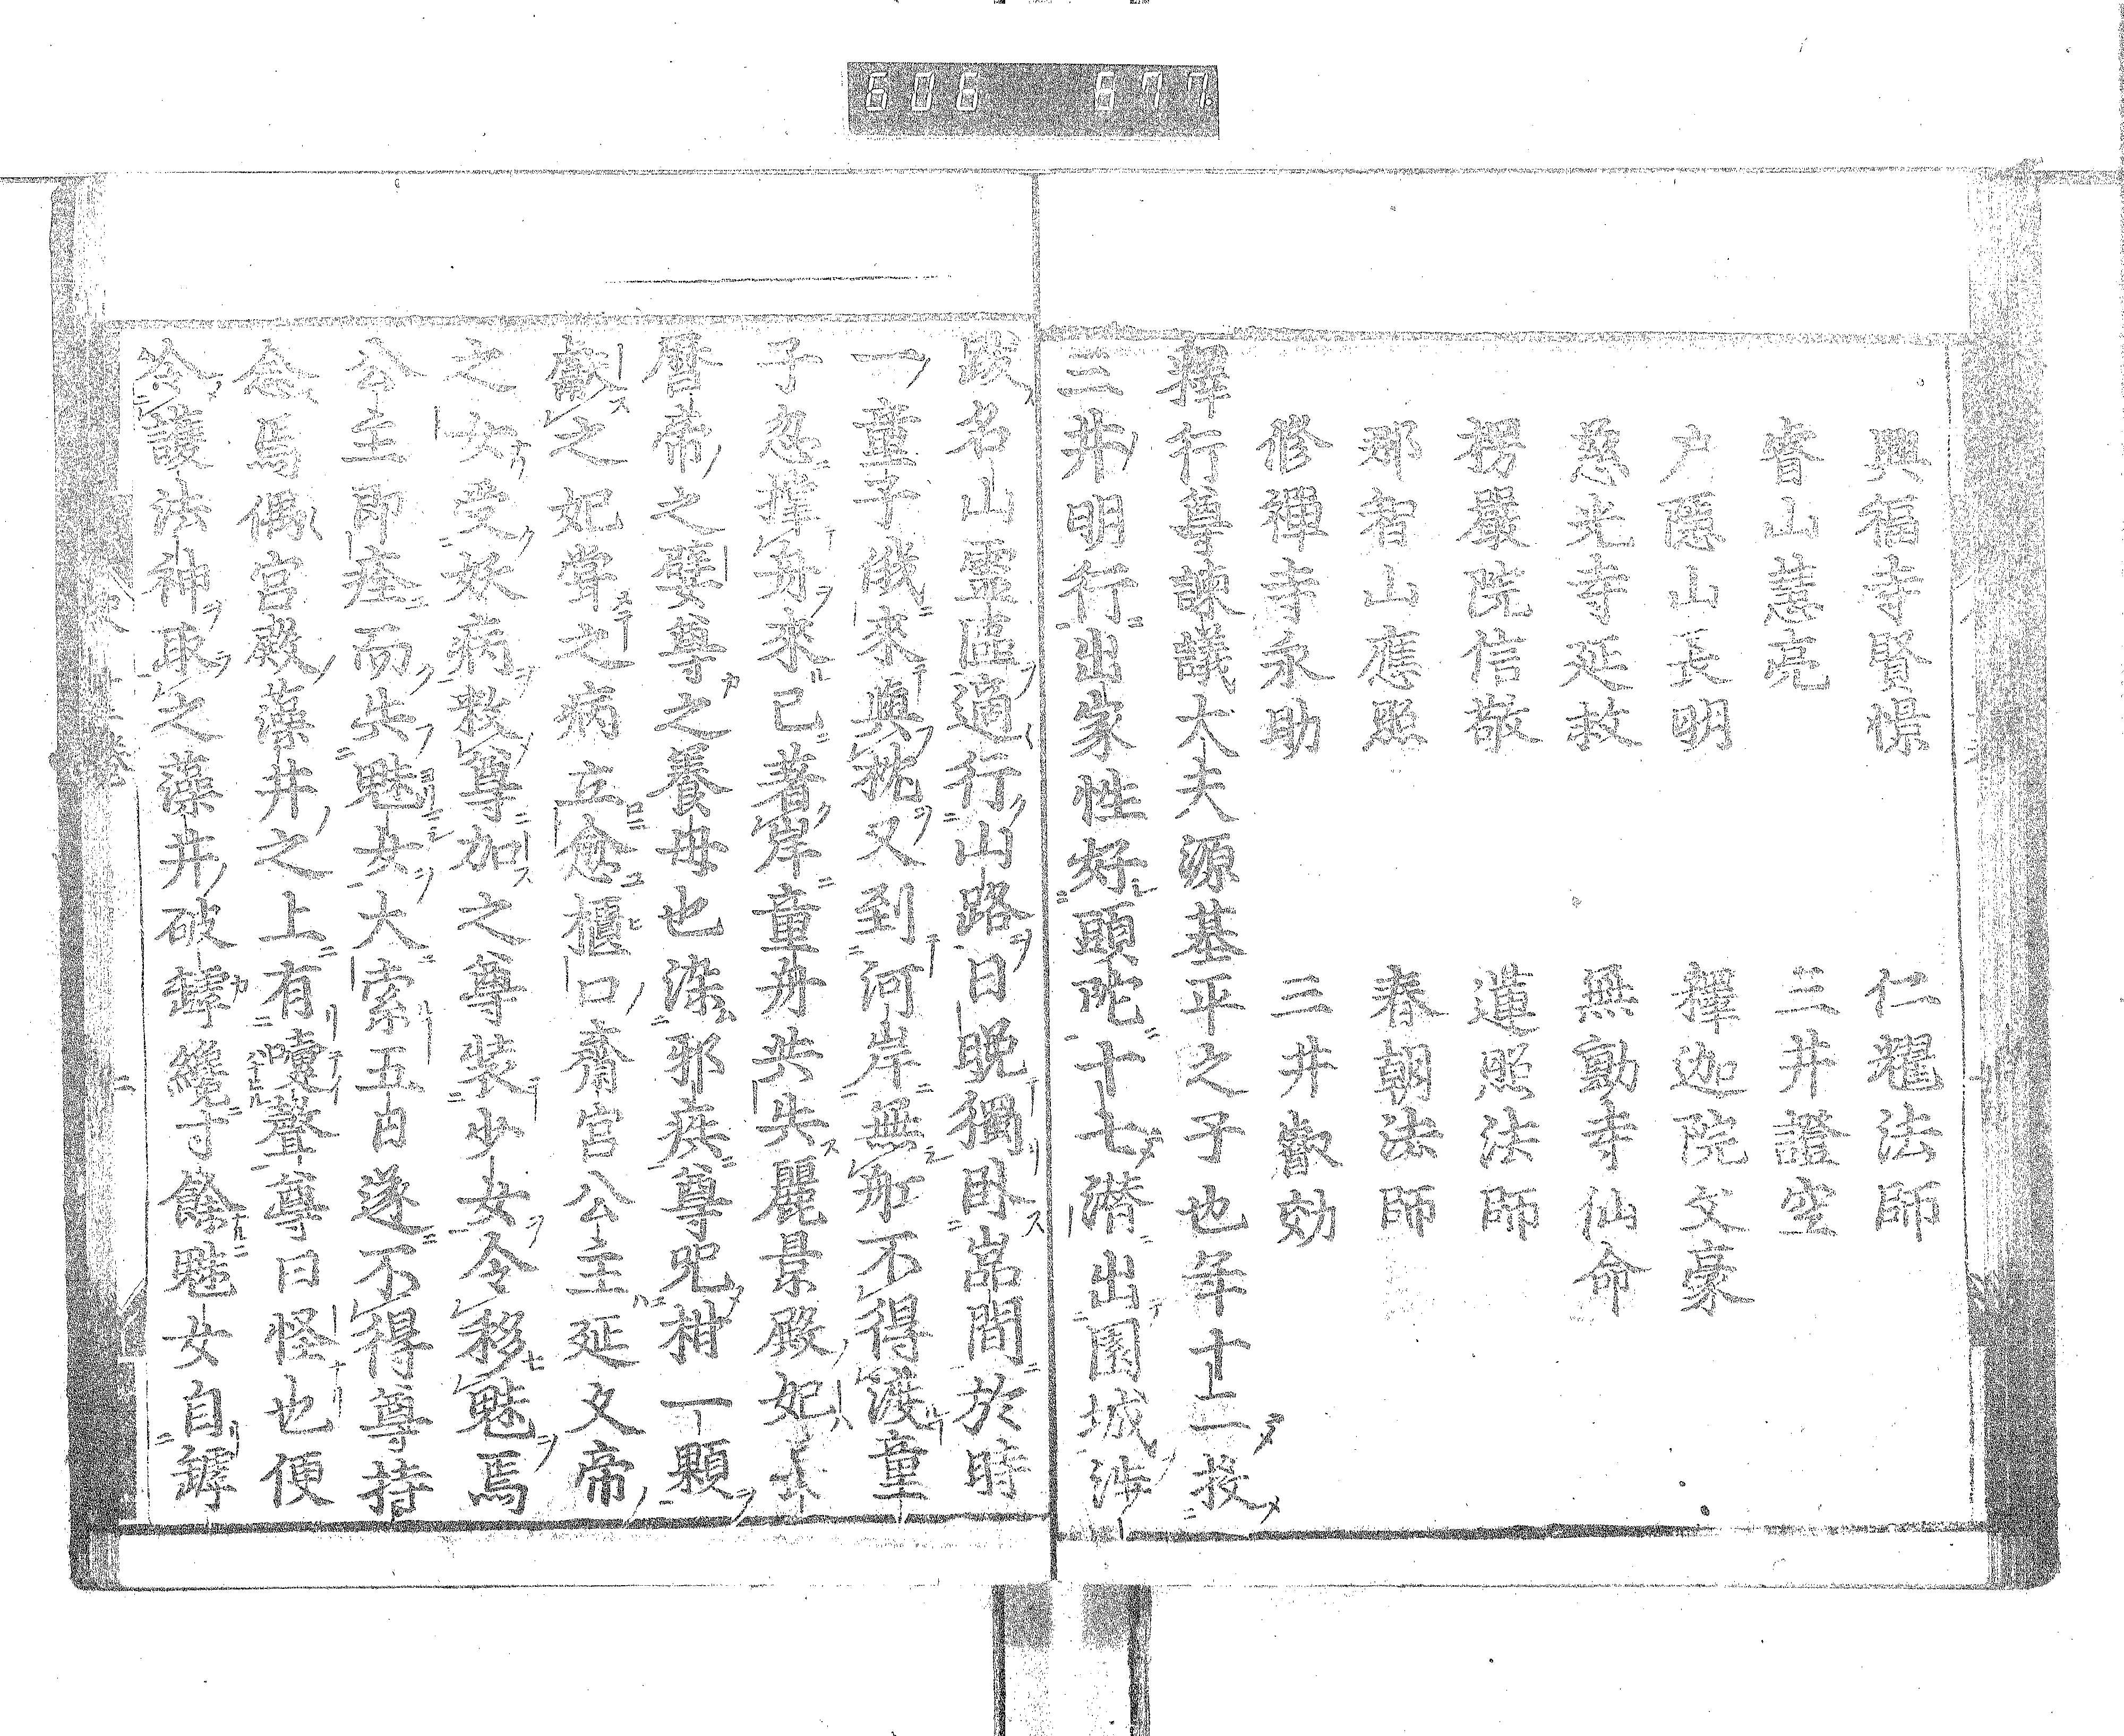 606 677
興福寺賢憬 仁耀法師
睿山慧亮 三井證空
戶隱山長明 釋迦院文豪
慈光寺延救 無動寺仙命
楞嚴院信敬 蓮照法師
那智山應照 春朝法師
修禪寺永助 三井叡効
釋行尊諫議大夫源基平之子也年十二投
三井明行出家性好頭陀十七潛出園城涉
跋名山靈區適行山路日晚獨臥嵓間於時
一童子俄來與枕又到河岸無舡不得渡童
子忽撑舟來已著岸童舟共失麗景殿妃
曆帝之嬖尊之養母也染邪疾尊咒柑一顆
獻之妃甞之病立愈櫃口齋宮公主延文帝
之女受妖病救尊加之尊裝少女令移魅焉
公主即痊而失魅女大索五日遂不得尊持
念焉偶宮殿藻井之上有嚔聲尊曰怪也便
令護法神取之藻井破罅纔寸餘魅女自罅